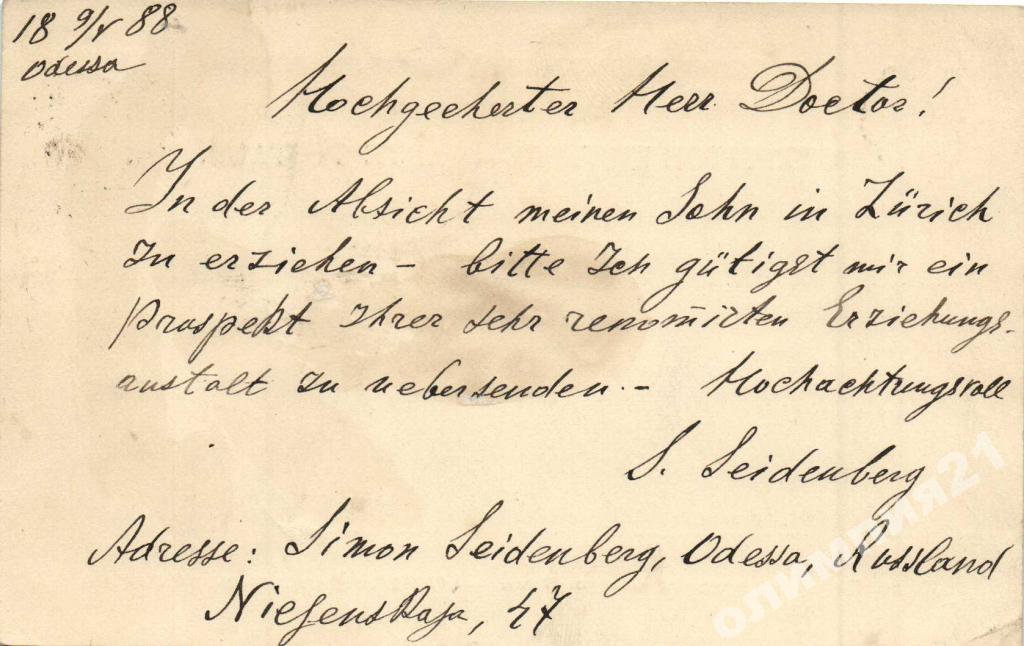 18 9/V 88
Odessa
Hochgeehrter Herr Doctor!
In der Absicht meinen Sohn in Zürich
zu erziehen – bitte Ich gütigst mir ein
Prospekt Ihrer sehr renom̅irten Erziehungs-
anstalt zu uebersenden. – Hochachtungsvoll
S. Seidenberg
Adresse: Simon Seidenberg, Odessa, Russland
Niejenskaja, 47
олимпия21